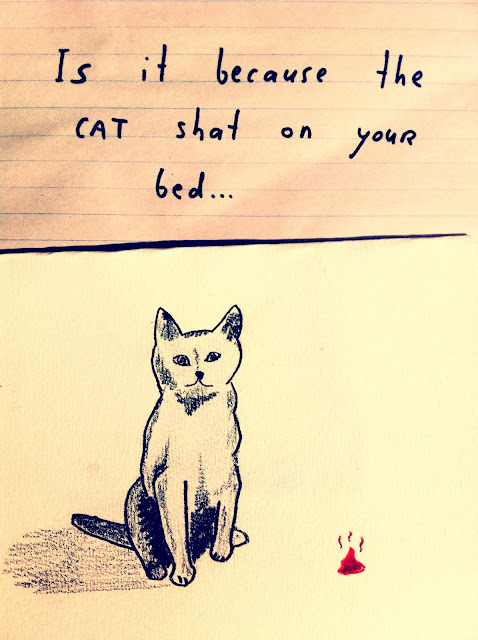 Is it because the
CAT shat on your
bed...